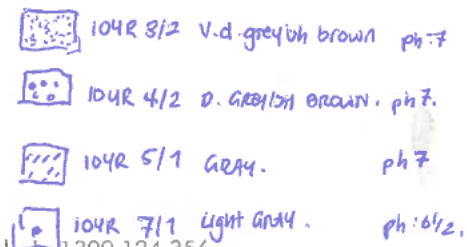 10YR 3/2 V.d. greyish brown ph:7
10YR 4/2 D. GREYISH BROWN. ph 7.
10YR 5/1 GRAY. ph 7
10YR 7/1 Light GRAY. ph: 6½.
1300 124 356